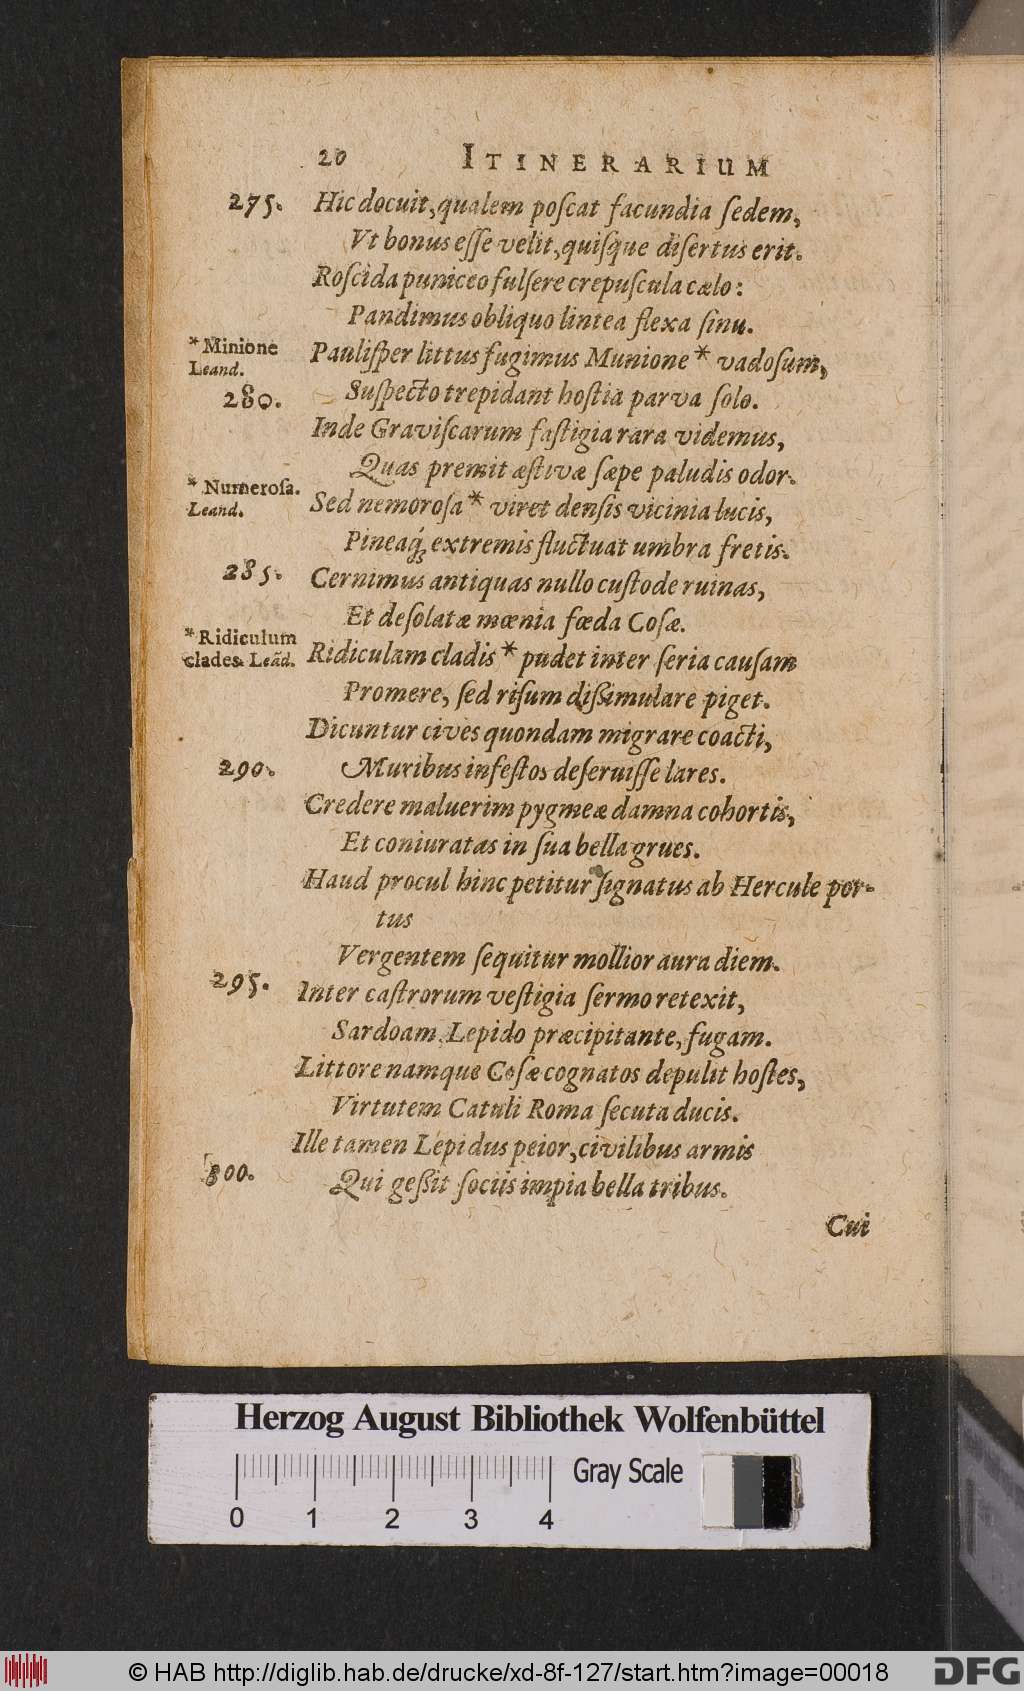 20 ITINERARIUM
275. Hic docuit, qualem poſcat facundia ſedem,
Vt bonus eſſe velit, quiſque diſertus erit.
Roſcida puniceo fulſere crepuſcula cælo:
Pandimus obliquo lintea flexa ſinu.
* Minione
Leand.
Pauliſper littus fugimus Munione * vadoſum,
280. Suſpecto trepidant hoſtia parva ſolo.
Inde Graviſcarum faſtigia rara videmus,
Quas premit æſtivæ ſæpe paludis odor.
* Numeroſa.
Leand.
Sed nemoroſa * viret denſis vicinia lucis,
Pineaq́; extremis fluctuat umbra fretis.
285. Cernimus antiquas nullo cuſtode ruinas,
Et deſolatæ mœnia fœda Coſæ.
* Ridiculum
clades. Leãd.
Ridiculam cladis * pudet inter ſeria cauſam
Promere, ſed riſum diſſimulare piget.
Dicuntur cives quondam migrare coacti,
290. Muribus infeſtos deſeruiſſe lares.
Credere maluerim pygmeæ damna cohortis,
Et coniuratas in ſua bella grues.
Haud procul hinc petitur ſignatus ab Hercule por-
tus
Vergentem ſequitur mollior aura diem.
295. Inter caſtrorum veſtigia ſermo retexit,
Sardoam Lepido præcipitante, fugam.
Littore namque Coſæ cognatos depulit hoſtes,
Virtutem Catuli Roma ſecuta ducis.
Ille tamen Lepidus peior, civilibus armis
300. Qui geſſit ſociis impia bella tribus.
Cui
Herzog August Bibliothek Wolfenbüttel
Gray Scale
0 1 2 3 4
© HAB http://diglib.hab.de/drucke/xd-8f-127/start.htm?image=00018
DFG